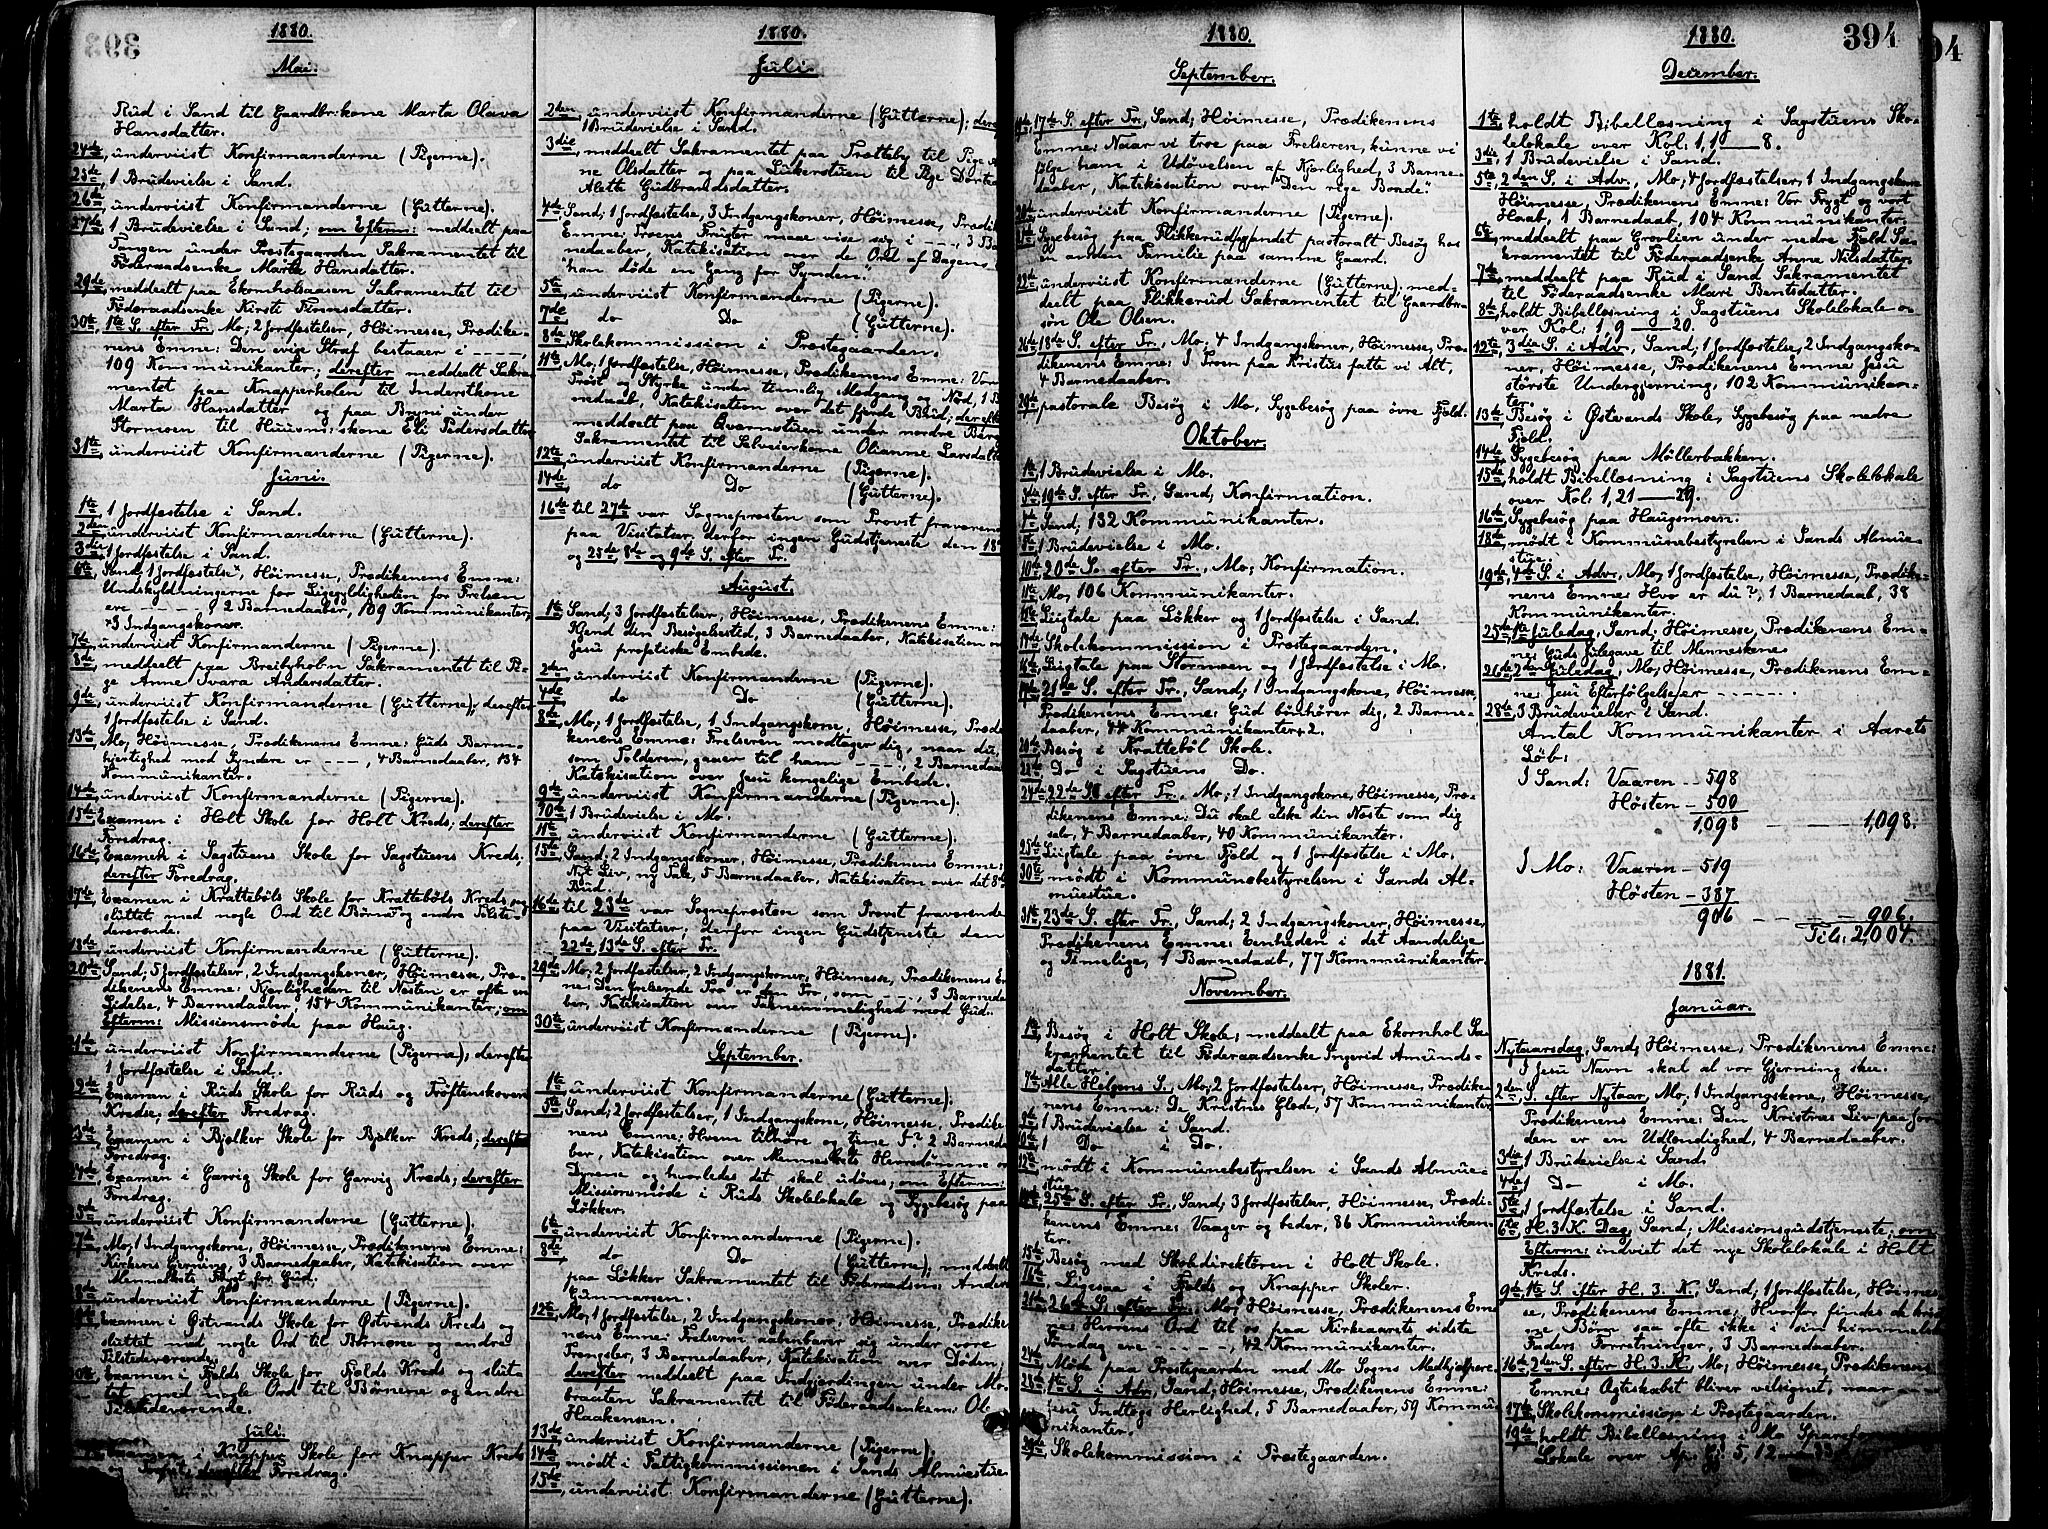 393
1880.
Mai.
Rud i Sand til Gaardbr:kone Marta Olava
Hansdatter.
24de, underviist Konfirmanderne (Pigerne).
25de, 1 Brudevielse i Sand.
26de, underviist Konfirmanderne (Gutterne).
27de, 1 Brudevielse i Sand; om Efterm: meddeelt paa
Tangen under Præstegaarden Sakramentet til
Føderaadsenke Marte Hansdatter.
29de, meddeelt paa Ekornholsaasen Sakramentet til
Føderaadsenke Kirsti Finnsdatter.
30te, 1te S. efter Tr., Mo; 2 Jordfæstelser, Høimesse, Prædike-
nens Emne: Den evige Straf bestaaer i ----,
109 Kommunikanter; derefter meddeelt Sakra-
mentet paa Knapperholen til Inderstkone
Marta Hansdatter og paa Bruni under
Stormoen til Huusm:skone Eli Pedersdatter
31te, underviist Konfirmanderne (Pigerne).
Juni.
1te, 1 Jordfæstelse i Sand.
2den, underviist Konfirmanderne (Gutterne).
3die, 1 Jordfæstelse i Sand.
6te, Sand; 1 Jordfæstelse, Høimesse, Prædikenens Emne:
Undskyldningerne for Ligegyldigheden for Frelsen
ere ----, 2 Barnedaaber, 109 Kommunikanter,
+3 Indgangskoner.
7de, underviist Konfirmanderne (Pigerne).
8de, meddeelt paa Breibyhol'n Sakramentet til Pi-
ge Anne Svara Andersdatter.
9de, underviist Konfirmanderne (Gutterne); derefter
1 Jordfæstelse i Sand.
13de, Mo, Høimesse, Prædikenens Emne: Guds Barm-
hjertighed mod Syndere er ---, 4 Barnedaaber, 134
Kommunikanter.
14de, underviist Konfirmanderne (Pigerne).
15de, Examen i Holt Skole for Holt Kreds; derefter
Foredrag.
16de, Examen i Sagstuens Skole for Sagstuens Kreds;
derefter Foredrag.
17de, Examen i Kratteböls Skole for Kratteböls Kreds og
sluttet med nogle Ord til Børnene og andre Tilste-
deværende.
18de, underviist Konfirmanderne (Gutterne).
20de, Sand; 5 Jordfæstelser, 2 Indgangskoner, Høimesse, Præ-
dikenens Emne: Kjærligheden til Næsten er ofte en
Lidelse, 4 Barnedaaber, 154 Kommunikanter; om
Efterm: Missionsmøde paa Haug.
21de, underviist Konfirmanderne (Pigerne); derefter
1 Jordfæstelse i Sand.
22de, Examen i Ruds Skole for Ruds og Tröftenskoven
Kredse; derefter Foredrag.
23de, Examen i Bjølker Skole for Bjølker Kreds; derefter
Foredrag.
24de, Examen i Garvig Skole for Garvig Kreds; derefter
Foredrag.
25de, underviist Konfirmanderne (Gutterne).
27de, Mo; 1 Indgangskone, Høimesse, Prædikenens Emne:
Kirkens Gjerning, 3 Barnedaaber, Katekisation over
Menneskets Frygt for Gud.
28de, underviist Konfirmanderne (Pigerne).
Examen i Østvands Skole for Østvands Kreds og
sluttet med nogle Ord til Børnene og andre
Tilstedeværende.
30te, Examen i Fjølds Skole for Fjølds Kreds og slut-
tet med nogle Ord til Børnene og andre
Tilstedeværende.
Juli.
Examen i Knapper Skole for Knapper Kreds
og derefter Foredrag.
1880.
Juli.
2den, underviist Konfirmanderne (Gutterne); deref
1 Brudevielse i Sand.
3die, meddeelt Sakramentet paa Trætteby til Pige
ne Olsdatter og paa Lukerstuen til Pige Dorte
Alette Gudbrandsdatter.
4de, Sand; 1 Jordfæstelse, 3 Indgangskoner, Høimesse, Prædik
Emne: Troens Frugter maae vise sig i ---, 3 Bar
nedaaber, Katekisation over de Ord af Dagens
"han døde en Gang for Synden."
5te, underviist Konfirmanderne (Pigerne).
7de, do Do (Gutterne).
8de, Skolekommission i Præstegaarden.
11te, Mo; 1 Jordfæstelse, Høimesse, Prædikenens Emne: Vor
Trøst og Styrke under timelig Modgang og Nød, 1 B
nedaab, Katekisation over det fjerde Bud; derefte
meddeelt paa Qvernstuen under nordre Berg
Sakramentet til Selveierkone Olianne Larsdatter
12te, underviist Konfirmanderne (Pigerne).
14de, do Do (Gutterne).
16de til 27de var Sognepræsten som Provst fraværende
paa Visitatser, derfor ingen Gudstjeneste den 18de
og 25de 8de og 9de S. efter Tr.
August.
1te, Sand; 3 Jordfæstelser, Høimesse, Prædikenens Emne:
Kjend din Besøgelsestid, 3 Barnedaaber, Katekisation ov
Jesu profetiske Embede.
2den, underviist Konfirmanderne (Pigerne).
4de, do Do (Gutterne).
8de, Mo; 1 Jordfæstelse, 1 Indgangskone, Høimesse, Prædi
kenens Emne: Frelseren modtager dig, naar du,
som Tolderen, gaaer til ham ----, 2 Barnedaab
Katekisation over Jesu kongelige Embede.
9de, underviist Konfirmanderne (Pigerne).
10de, 1 Brudevielse i Mo.
11te, underviist Konfirmanderne (Gutterne).
15de, Sand; 2 Indgangskoner, Høimesse, Prædikenens Emne:
Nyt Liv, ny Tale, 5 Barnedaaber, Katekisation over det 8de
Bud.
16de til 23de var Sognepræsten som Provst fraværende
paa Visitatser; derfor ingen Gudstjeneste den
22de, 13de S. efter Tr.
29de, Mo; 2 Jordfæstelser, 2 Indgangskoner, Høimesse, Prædikenens Em
ne: Den frelsende Tro er den Tro, som ---, 3 Barneda
ber, Katekisation over Taknemmelighed mod Gud.
30te, underviist Konfirmanderne (Pigerne).
September.
1te, underviist Konfirmanderne (Gutterne).
5te, Sand; 2 Jordfæstelser, 1 Indgangskone, Høimesse, Prædike
nens Emne: Hvem tilhøre og tjene I? 2 Barneda
ber, Katekisation over Menneskets Herredømme ov
Dyrene og hvorledes det skal udøves; om Efterm:
Missionsmøde i Ruds Skolelokale og Sygebesøg paa
Løkker.
6te, underviist Konfirmanderne (Pigerne).
8de, do Do (Gutterne), meddeelt
paa Løkker Sakramentet til Føderaadsm: Anders
Gunnarsen.
12te, Mo; 1 Jordfæstelse, 2 Indgangskoner, Høimesse, Prædike
nens Emne: Frelseren aabenbarer sig under vore
Trængsler, 3 Barnedaaber, Katekisation over Døden;
derefter meddeelt paa Indgjærdingen under Mo-
braaten Sakramentet til Føderaadsenkem: Ole
Haakensen.
13de, underviist Konfirmanderne (Pigerne).
14de, mødt i Fattigkommissionen i Sands Almuestue
15de, underviist Konfirmanderne (Gutterne).
1880.
September.
19de, 17de S. efter Tr., Sand; Høimesse, Prædikenens
Emne: Naar vi troe paa Frelseren, kunne vi
følge ham i Udøvelsen af Kjærlighed, 3 Barne-
daaber, Katekisation over "Den rige Bonde"
20de, underviist Konfirmanderne (Pigerne).
21de, Sygebesøg paa Flikkerud, andet pastoralt Besøg hos
en anden Familie paa samme Gaard.
22de, underviist Konfirmanderne (Gutterne); med-
deelt paa Flikkerud Sakramentet til Gaardbr-
søn Ole Olsen.
26de, 18de S. efter Tr., Mo; 4 Indgangskoner, Høimesse, Præ-
dikenens Emne: I Troen paa Kristus fatte vi Alt,
4 Barnedaaber.
29de, pastorale Besøg i Mo, Sygebesøg paa øvre Fjold.
Oktober.
1te, 1 Brudevielse i Mo.
3de, 19de S. efter Tr., Sand, Konfirmation.
4de, Sand; 132 Kommunikanter.
8de, 1 Brudevielse i Mo.
10de, 20de S. efter Tr., Mo; Konfirmation.
11te, Mo, 106 Kommunikanter.
Liigtale paa Løkker og 1 Jordfæstelse i Sand.
Skolekommission i Præstegaarden.
16de, Liigtale paa Stormoen og 1 Jordfæstelse i Mo.
17de, 21de S. efter Tr., Sand; 1 Indgangskone, Høimesse
Prædikenens Emne: Gud bönhörer dig, 2 Barne-
daaber, 44 Kommunikanter+2.
20de, Besøg i Kratteböl Skole.
22de, Do i Sagstuens Do.
24de, 22de S. efter Tr., Mo; 1 Indgangskone, Høimesse, Præ-
dikenens Emne: Du skal elske din Næste som dig
selv, 4 Barnedaaber, 40 Kommunikanter.
25de, Liigtale paa øvre Fjold og 1 Jordfæstelse i Mo.
30te, mødt i Kommunebestyrelsen i Sands Al-
muestue.
31te, 23de S. efter Tr., Sand; 2 Indgangskoner, Høimesse,
Prædikenens Emne: Eenheden i det Aandelige
og Timelige, 1 Barnedaab, 77 Kommunikanter.
November.
1te, Besøg i Holt Skole; meddeelt paa Ekornhol Sa-
kramentet til Føderaadsenke Ingerid Amunds-
datter.
7de, Alle Helgens S., Mo; 2 Jordfæstelser, Høimesse, Prædike-
nens Emne: De Kristnes Glæde, 57 Kommunikanter
9de, 1 Brudevielse i Sand.
10de, 1 Do i Do.
12te, mødt i Kommunebestyrelsen i Sands Almue-
stue.
14de, 25de S. efter Tr., Sand, 3 Jordfæstelser, Høimesse, Prædi-
kenens Emne: Vaager og beder, 86 Kommunikan-
ter.
15de, Besøg med Skoledirektören i Holt Skole.
16de, Ligesaa i Fjolds og Knapper Skoler.
21de, 26de S. efter Tr., Mo; Høimesse, Prædikenens Em-
ne: Herrens Ord til os paa Kirkeaarets sidste
Söndag ere ----, 42 Kommunikanter.
24de, Møde paa Præstegaarden med Mo Sogns Medhjælpere.
28de, 1te S. i Adv., Sand; Høimesse, Prædikenens Emne:
Jesu Indtogs Herlighed, 5 Barnedaaber, 59 Kommu-
nikanter.
29de, Skolekommission i Præstegaarden.
394
94
1880.
December.
1te, holdt Bibellæsning i Sagstuens Sko-
lelokale over Kol: 1, 1 — 8.
3die, 1 Brudevielse i Sand.
5te, 2den S. i Adv., Mo, 4 Jordfæstelser, 1 Indgangskone
Høimesse, Prædikenens Emne: Vor Frygt og vort
Haab, 1 Barnedaab, 104 Kommunikanter.
6te, meddeelt paa Grovlien under nedre Fjold Sa-
kramentet til Føderaadsenke Anne Nilsdatter.
7de, meddeelt paa Rud i Sand Sakramentet
til Føderaadsenke Mari Bentsdatter.
8de, holdt Bibellæsning i Sagstuens Skolelokale o-
ver Kol: 1, 9 — 20.
12te, 3die S. i Adv., Sand; 1 Jordfæstelse, 2 Indgangsko-
ner, Høimesse, Prædikenens Emne: Jesu
største Undergjerning, 102 Kommunikan-
ter.
13de, Besøg i Østvands Skole, Sygebesøg paa nedre
Fjold.
14de, Sygebesøg paa Møllerbakken.
15de, holdt Bibellæsning i Sagstuens Skolelokale
over Kol: 1, 21 — 29.
16de, Sygebesøg paa Haugsmoen.
18de, mødt i Kommunebestyrelsen i Sands Almue-
stue.
19de, 4de S. i Adv., Mo, 1 Jordfæstelse, Høimesse, Prædike-
nens Emne: Hvo er du?, 1 Barnedaab, 38
Kommunikanter.
25de, 1te Juledag, Sand; Høimesse, Prædikenens Em-
ne: Guds Julegave til Menneskene.
26de, 2den Juledag, Mo; Høimesse, Prædikenens Em-
ne: Jesu Efterfølgelse er -----.
28de, 3 Brudevielser i Sand.
Antal Kommunikanter i Aarets
Løb:
I Sand: Vaaren - 598
Høsten - 500
1,098 - - - 1,098.
I Mo: Vaaren - 519
Høsten - 387
906 - - - 906.
Tils: 2,004.
1881.
Januar.
Nytaarsdag, Sand; Høimesse, Prædikenens Emne:
I Jesu Navn skal al vor Gjerning skee.
2den, S. efter Nytaar, Mo, 1 Indgangskone, Høimesse,
Prædikenens Emne: Den Kristnes Liv paa Jor-
den er en Udlændighed, 4 Barnedaaber.
3die, 1 Brudevielse i Sand
4de, 1 Do i Mo.
5te, 1 Jordfæstelse i Sand.
6te, H. 3. K. Dag, Sand; Missionsgudstjeneste; om
Efterm: indviet det nye Skolelokale i Holt
Kreds.
9de, 1te S. efter H. 3. K., Sand; 1 Jordfæstelse, Høimes-
se, Prædikenens Emne: Hvorfor findes de krist
ne Børn saa ofte ikke i sin himmelske
Faders Forretninger, 3 Barnedaaber.
16de, 2den S. efter H. 3. K., Mo; Høimesse, Prædikenens
Emne: Ægteskabet bliver velsignet, naar ---
17de, Skolekommission i Præstegaarden.
19de, holdt Bibellæsning i Mo
Lokale over Ap. Gj. 5, 12